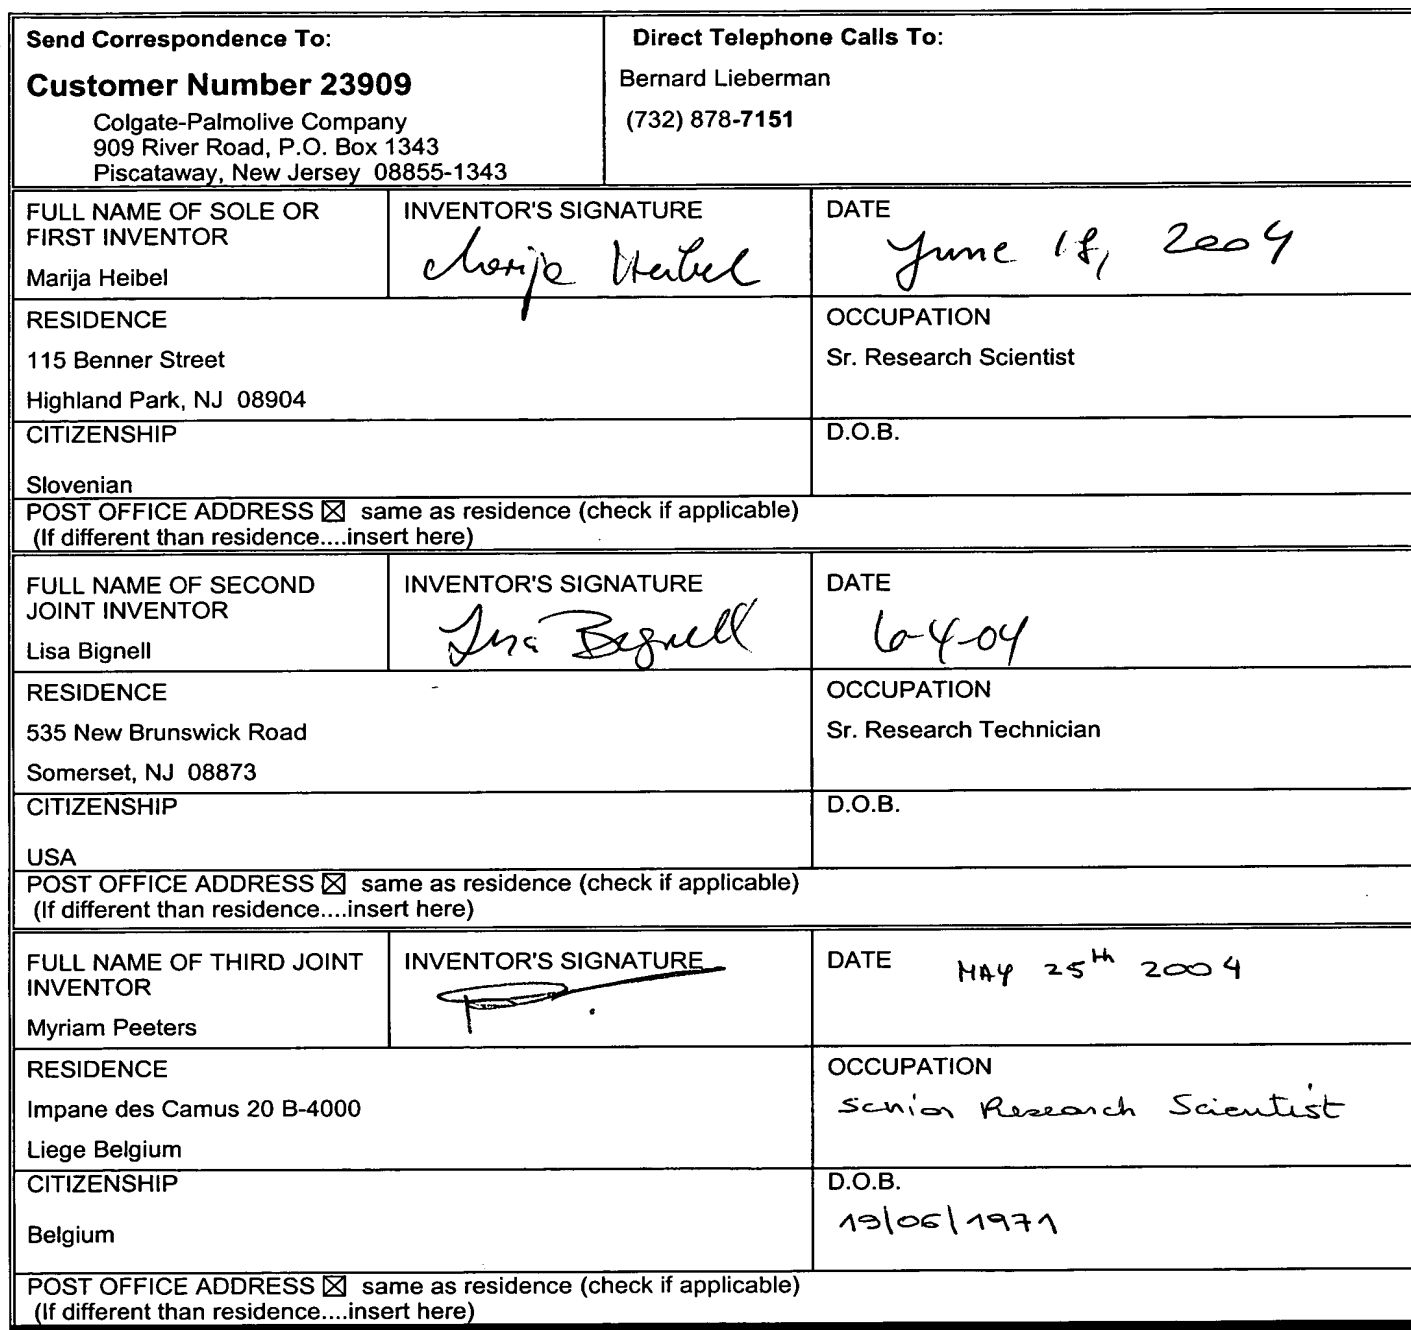 Send Correspondence To:
Customer Number 23909
Colgate-Palmolive Company
909 River Road, P.O. Box 1343
Piscataway, New Jersey 08855-1343
Direct Telephone Calls To:
Bernard Lieberman
(732) 878-7151
FULL NAME OF SOLE OR
FIRST INVENTOR
Marija Heibel
INVENTOR'S SIGNATURE
Marija Heibel
DATE
June 18, 2004
RESIDENCE
115 Benner Street
Highland Park, NJ 08904
OCCUPATION
Sr. Research Scientist
CITIZENSHIP
Slovenian
D.O.B.
POST OFFICE ADDRESS ☒ same as residence (check if applicable)
(If different than residence....insert here)
FULL NAME OF SECOND
JOINT INVENTOR
Lisa Bignell
INVENTOR'S SIGNATURE
Lisa Bignell
DATE
6-4-04
RESIDENCE
535 New Brunswick Road
Somerset, NJ 08873
OCCUPATION
Sr. Research Technician
CITIZENSHIP
USA
D.O.B.
POST OFFICE ADDRESS ☒ same as residence (check if applicable)
(If different than residence....insert here)
FULL NAME OF THIRD JOINT
INVENTOR
Myriam Peeters
INVENTOR'S SIGNATURE
DATE
MAY 25th 2004
RESIDENCE
Impane des Camus 20 B-4000
Liege Belgium
OCCUPATION
Senior Research Scientist
CITIZENSHIP
Belgium
D.O.B.
19/06/1971
POST OFFICE ADDRESS ☒ same as residence (check if applicable)
(If different than residence....insert here)